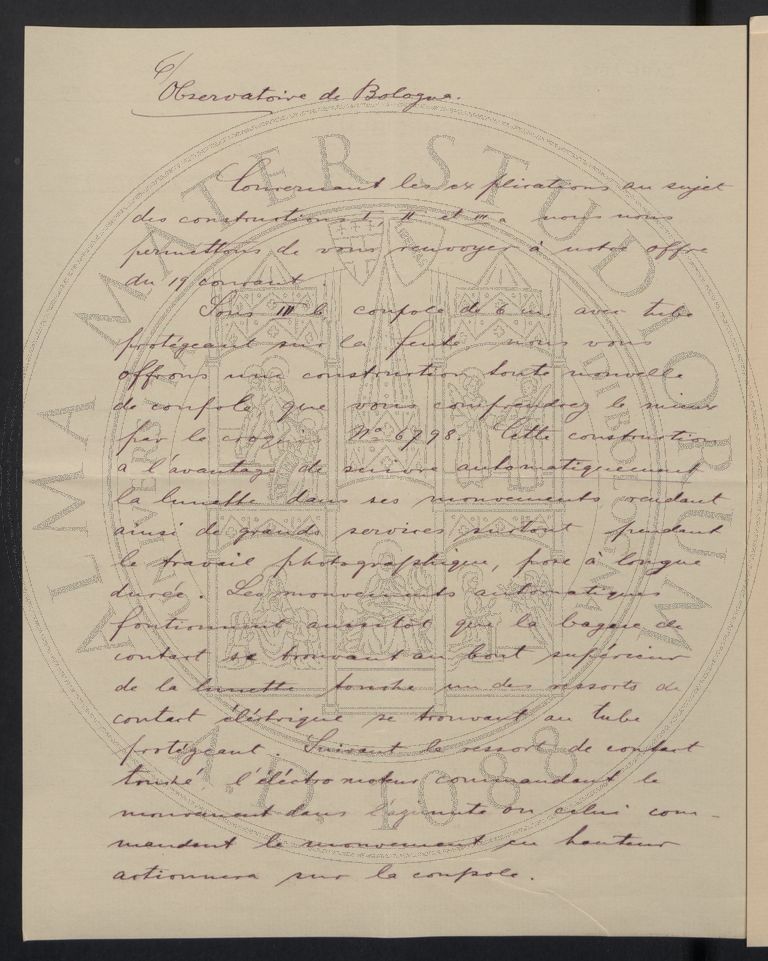 6/
Observatoire de Bologne.
Concernant les explications au sujet
des constructions I, II et III a nous nous
permettons de vous renvoyer à notre offre
du 19 courant.
Sous III b coupole de 6 m. avec tube
protégeant sur la fente nous vous
offrons une construction toute nouvelle
de coupole que vous comprendrez le mieux
par le croquis Nº 6798. Cette construction
a l'avantage de suivre automatiquement
la lunette dans ses mouvements rendant
ainsi de grands services surtout pendant
le travail photographique, pose à longue
durée. Les mouvements automatiques
fontionnent aussitôt que la bague de
contact se trouvant au bout supérieur
de la lunette touche un des ressorts de
contact éléctrique se trouvant au tube
protégeant. Suivant le ressort de contact
touché l'éléctromoteur commandant le
mouvement dans l'azimute ou celui com-
mandant le mouvement en hauteur
actionnera sur la coupole.
ALMA MATER STUDIORUM
A.D. 1088